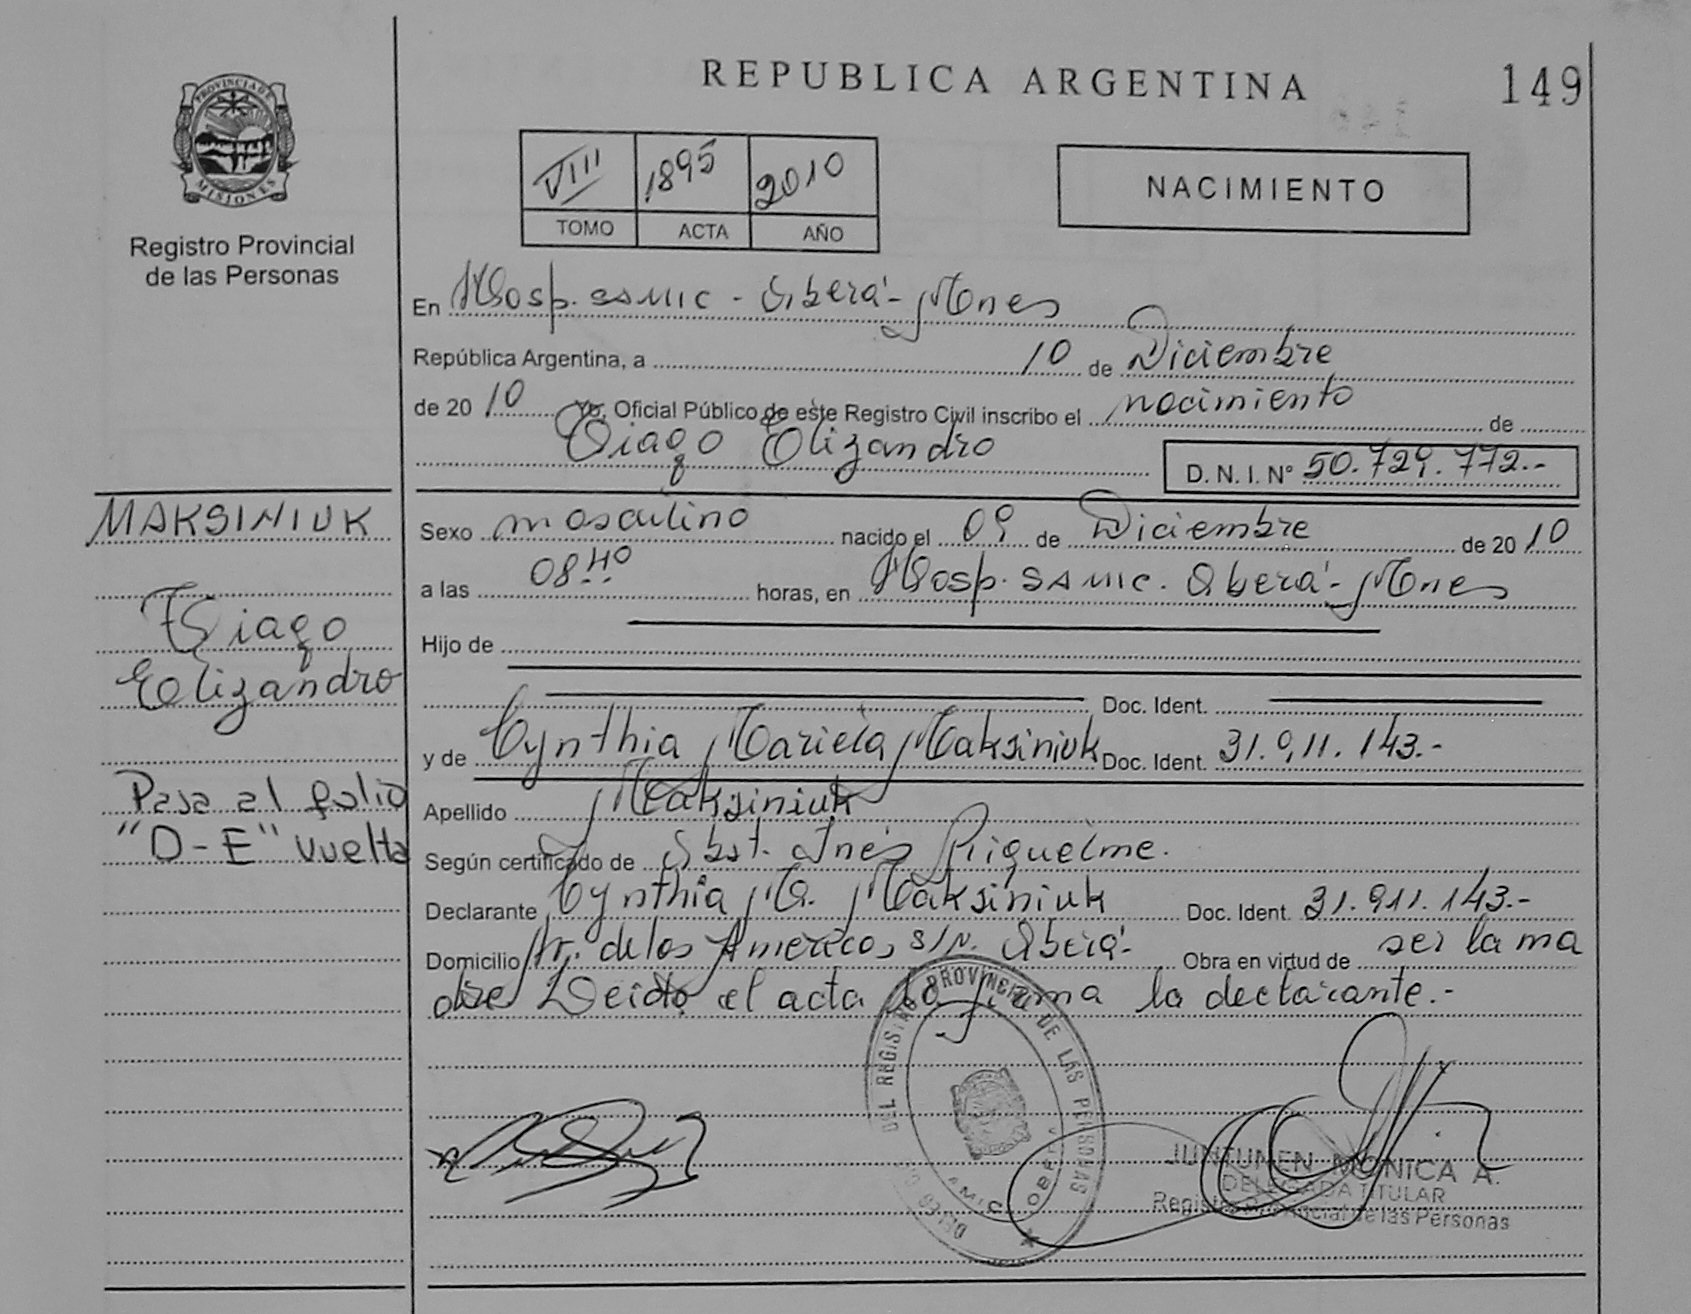 REPUBLICA ARGENTINA
149
PROVINCIA DE
MISIONES
Registro Provincial
de las Personas
VIII 1895 2010
TOMO ACTA AÑO
NACIMIENTO
En Hosp. SAMIC - Oberá - Mnes
República Argentina, a 10 de Diciembre
de 2010 Yo, Oficial Público de este Registro Civil inscribo el nacimiento de
Tiago Elizandro
D. N. I. N° 50.729.772.-
MAKSINIUK
Tiago
Elizandro
Pasa al folio
"D-E" vuelta
Sexo masculino nacido el 09 de Diciembre de 2010
a las 08:40 horas, en Hosp. SAMIC. Oberá - Mnes
Hijo de
Doc. Ident.
y de Cynthia Mariela Maksiniuk Doc. Ident. 31.911.143.-
Apellido Maksiniuk
Según certificado de Obst. Inés Riquelme.
Declarante Cynthia M. Maksiniuk Doc. Ident. 31.911.143.-
Domicilio Av. de las Americas S/N. Oberá- Obra en virtud de ser la ma
dre Leido el acta la firma la declarante.-
DEL REGISTRO PROVINCIAL DE LAS PERSONAS
JUNTUNEN MONICA A.
DELEGADA TITULAR
Registro Provincial de las Personas